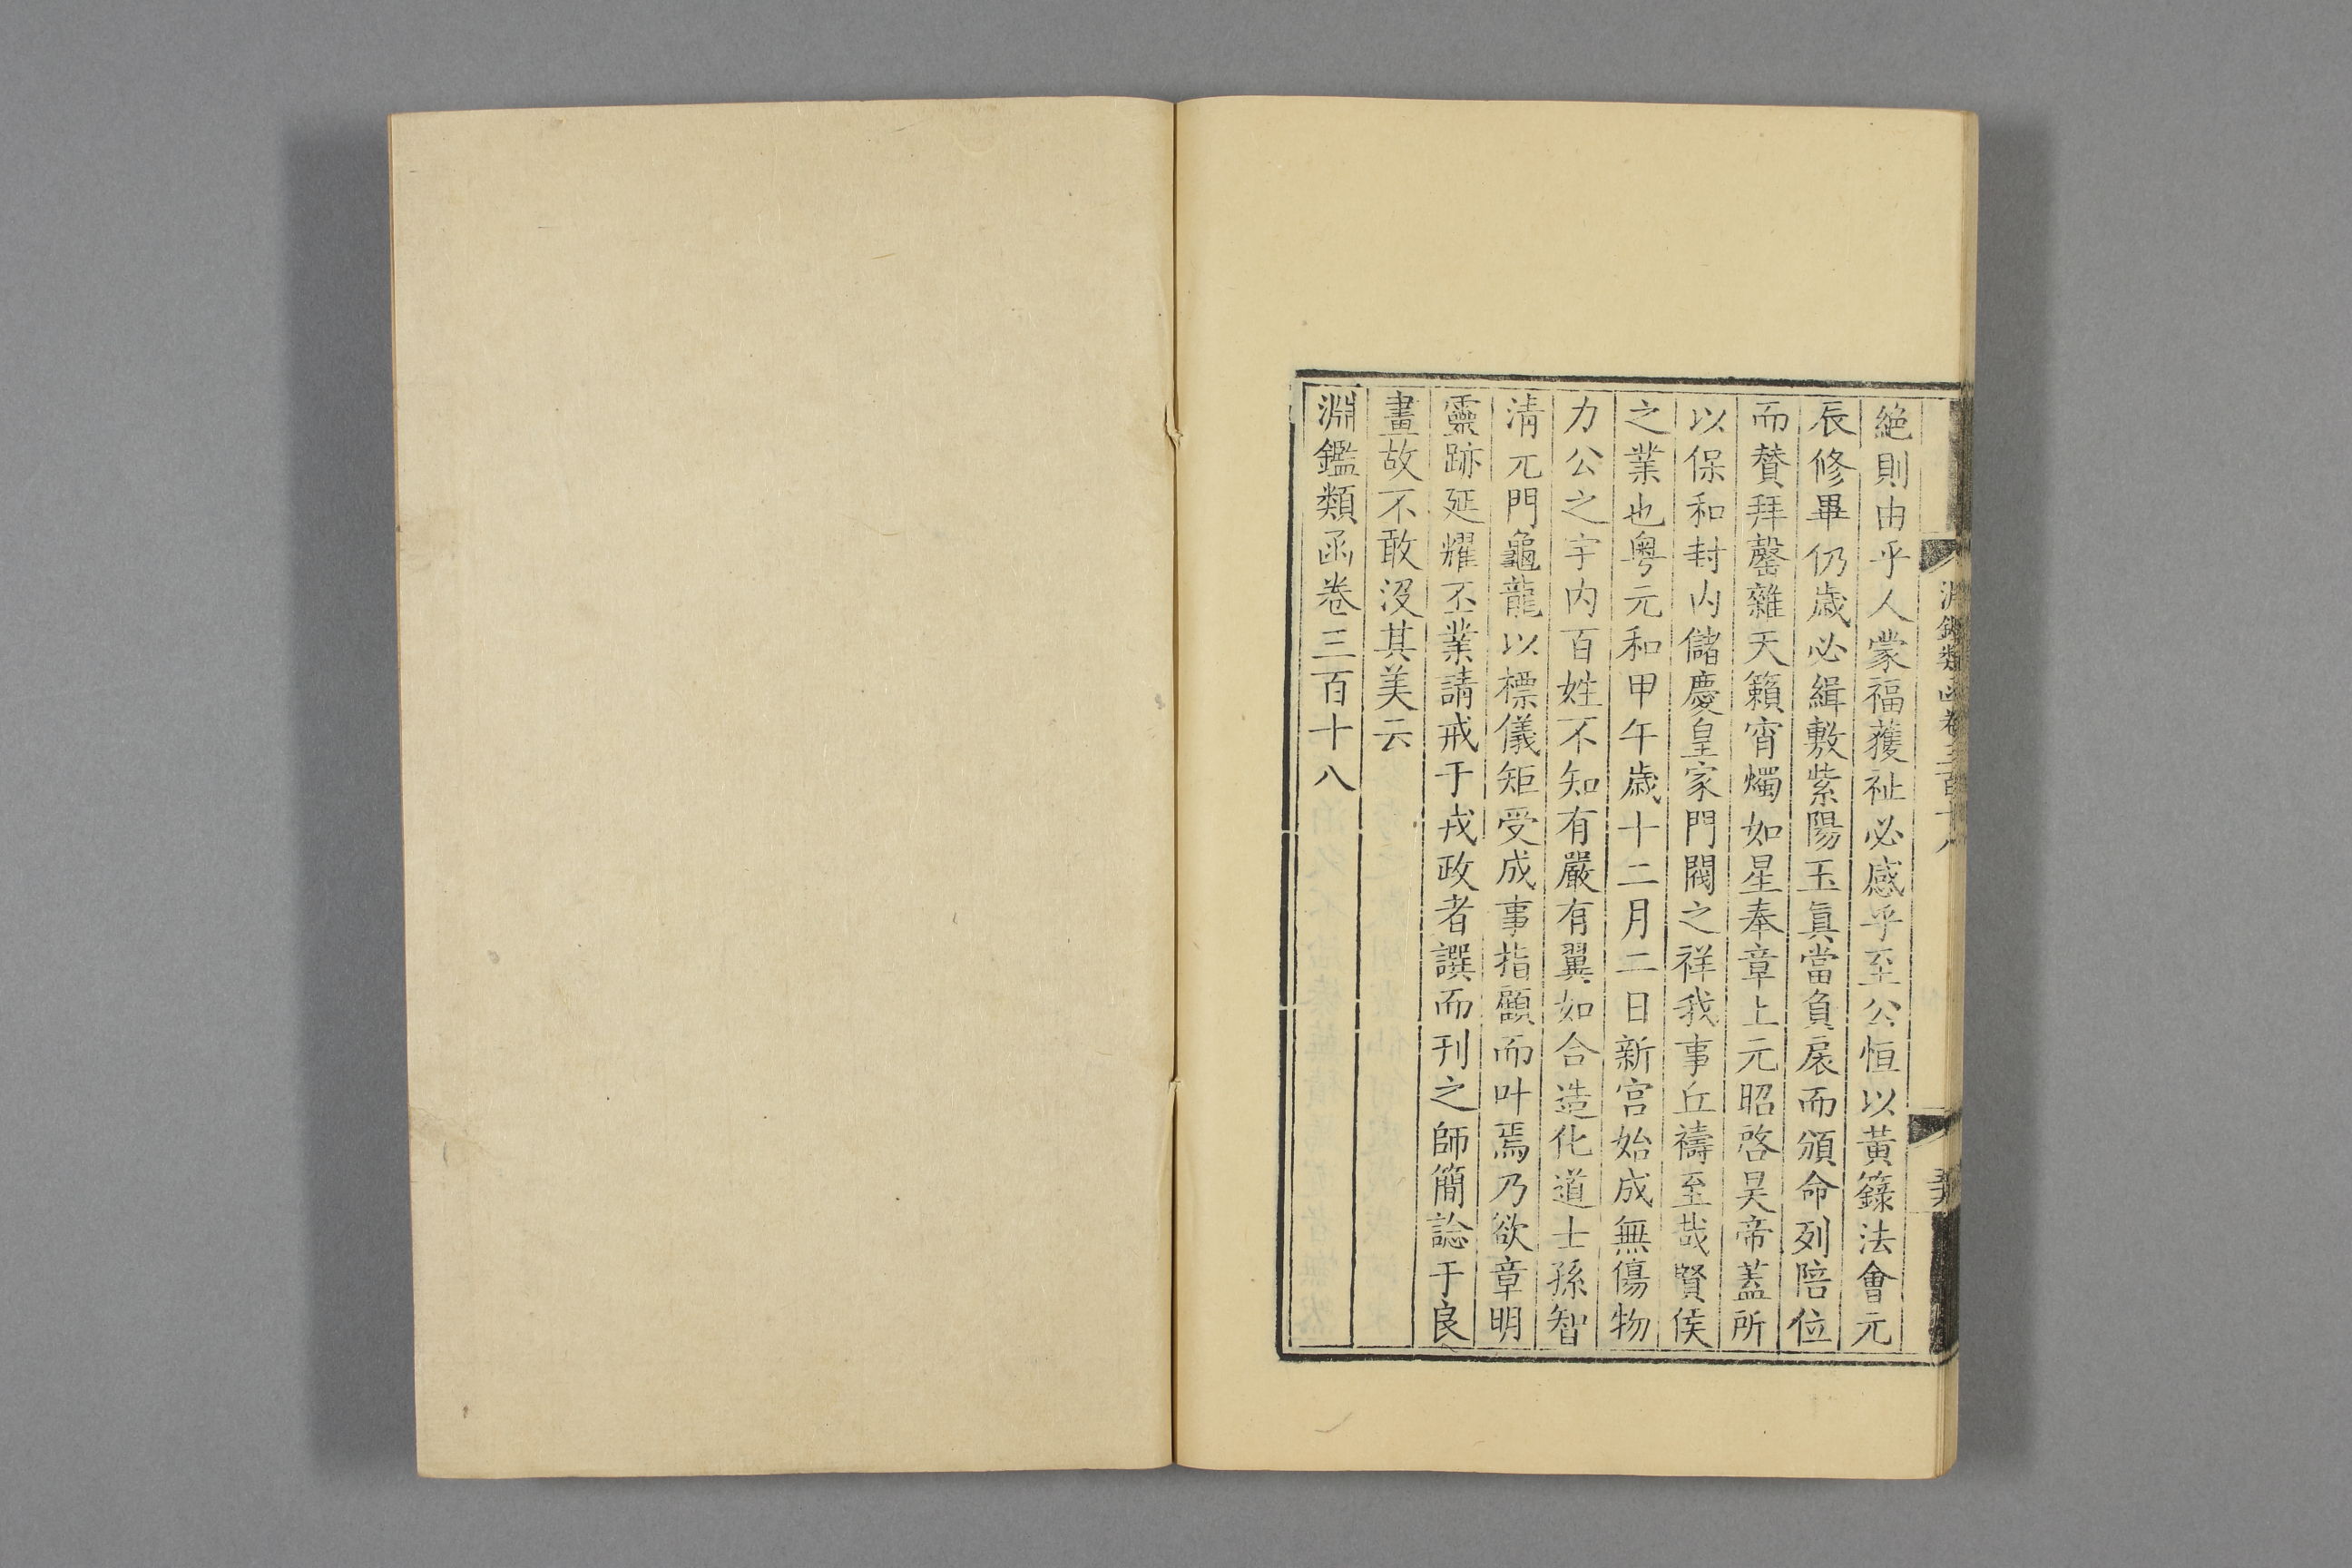 淵鑑類函卷三百十八
絶則由乎人蒙福獲祉必感乎至公恒以黃籙法會元
辰修畢仍歲必緝敷紫陽玉眞當負扆而頒命列陪位
而賛拜罄雜天籟宵燭如星奉章上元昭啓昊帝蓋所
以保和封内儲慶皇家門閥之祥我事丘禱至哉賢侯
之業也粤元和甲午歲十二月二日新宮始成無傷物
力公之宇内百姓不知有嚴有翼如合造化道士孫智
清元門龜龍以標儀矩受成事指顧而叶焉乃欲章明
靈跡延耀丕業請戒于戎政者譔而刊之師簡諗于良
畫故不敢没其美云
淵鑑類函卷三百十八